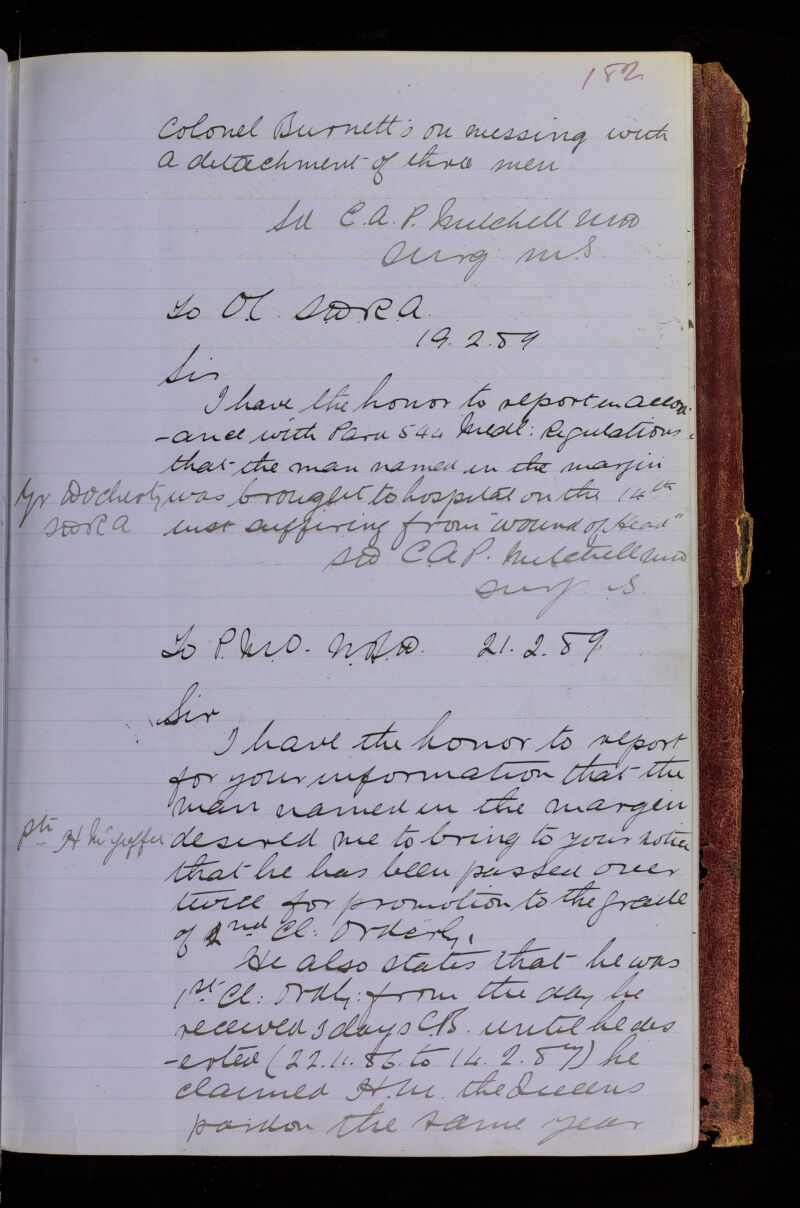 182
Colonel Burnett's on messing with
a detachment of three men
Sd C. A. P. Mitchell MD
Surg M.S.
To OC SDRA.
19.2.89
Sir
I have the honor to report in accord
-ance with Para 544 Medl: Regulations
that the man named in the margin
Gr Docherty was brought to hospital on the 14th
SDRA inst suffering from "Wound of Head"
SD C. A. P. Mitchell MD
Surg M.S.
To P.M.O. N.B.D. 21.2.89
Sir
I have the honor to report
for your information that the
man named in the margin
Pte H desired me to bring to your notice
that he has been passed over
twice for promotion to the grade
of 2nd Cl: Orderly.
He also states that he was
1st Cl: Ordly: from the day he
received 3 days C.B. until he des
-erted (22.11.86 to 14.2.87) he
claimed H.M. the Queens
pardon the same year